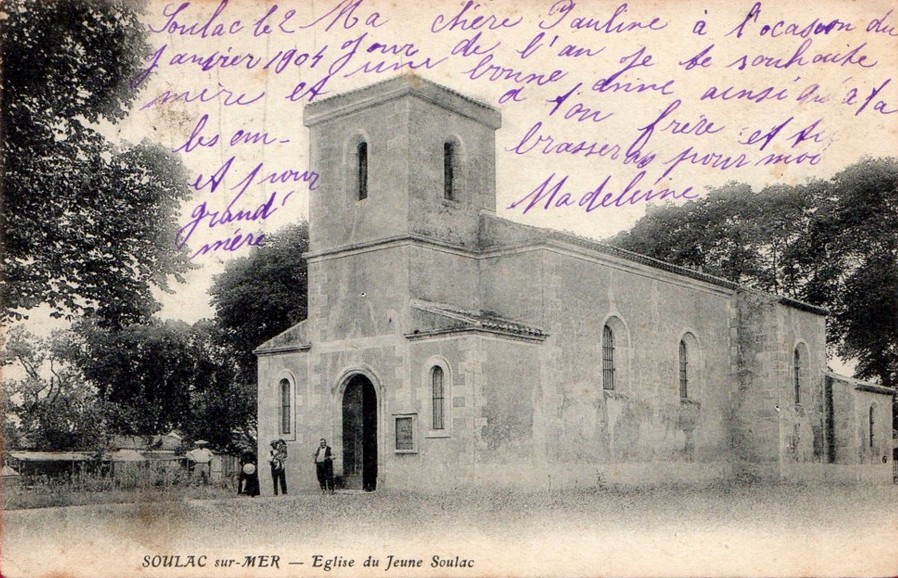 Soulac le 2 Ma chère Pauline à l'ocasion du
Janvier 1904 Jour de l'an je te souhaite
une bonne année ainsi qu'à ta
mère et à ton frère et tu
les em-
brasseras pour moi
et pour
grand'
mère
Madeleine
SOULAC sur-MER — Eglise du Jeune Soulac